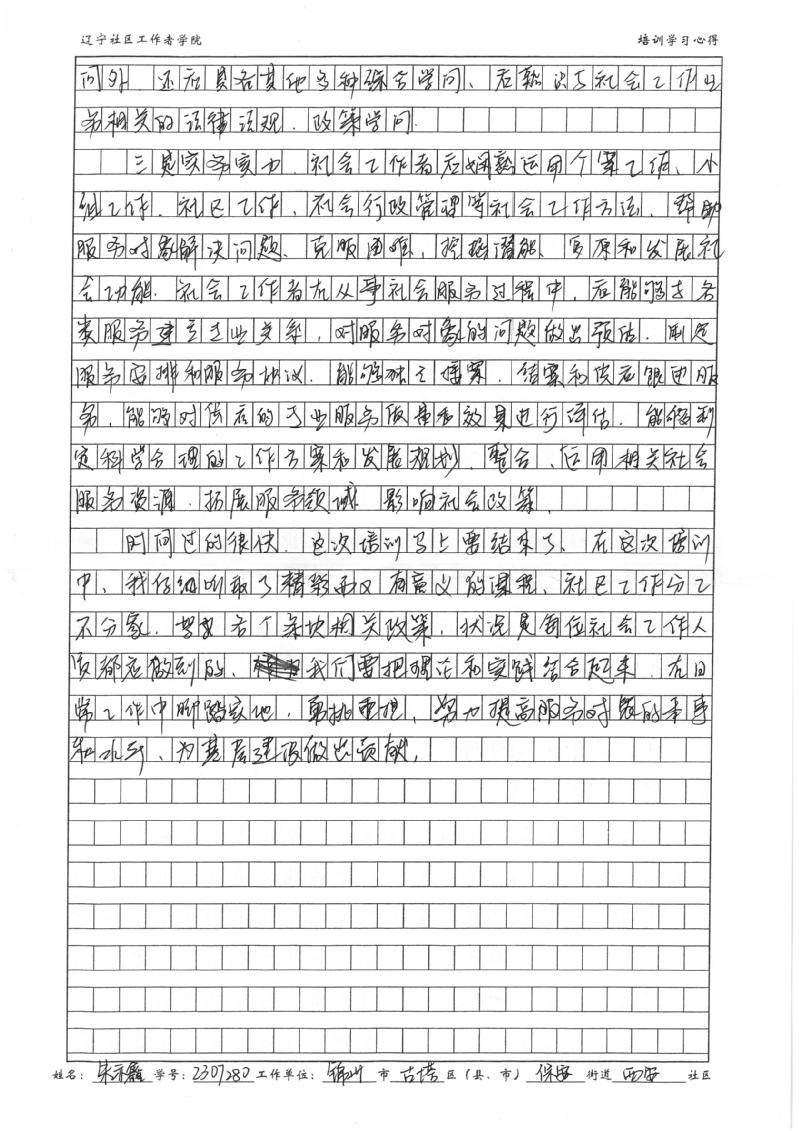 辽宁社区工作者学院 培训学习心得
问外、还应具备其他多种综合学问、应熟识与社会工作业
务相关的法律法规、政策学问.
三是实务实力、社会工作者应娴熟运用个案工作、小
组工作、社区工作、社会行政管理等社会工作方法、帮助
服务对象解决问题、克服困难、挖掘潜能、复原和发展社
会功能.社会工作者在从事社会服务过程中,应能够与各
类服务建立专业关系,对服务对象的问题做出预估、制定
服务安排和服务协议、能够独立接案、结案和供应跟进服
务,能够对供应的专业服务质量和效果进行评估、能够制
定科学合理的工作方案和发展规划、整合、运用相关社会
服务资源、拓展服务领域 影响社会政策.
时间过的很快、这次培训马上要结束了、在这次培训
中、我仔细听取了精彩而又有意义的课程、社区工作分工
不分家、 各个条块相关政策、状况是每位社会工作人
员都应做到的、我们要把理论和实践结合起来、在日
常工作中脚踏实地,勇挑重担,努力提高服务对象的本事
和水平、为基层建设做出贡献.
姓名: 学号:2307280工作单位:锦州市古塔区(县、市)保安街道西安社区